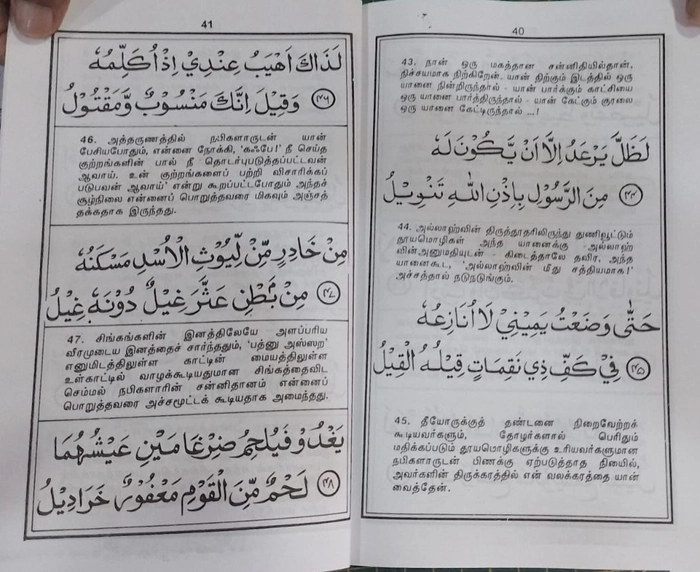 40
43. நான் ஒரு மகத்தான சன்னிதியில்தான்,
நிச்சயமாக நிற்கிறேன். யான் நிற்கும் இடத்தில் ஒரு
யானை நின்றிருந்தால் - யான் பார்க்கும் காட்சியை
ஒரு யானை பார்த்திருந்தால் - யான் கேட்கும் குரலை
ஒரு யானை கேட்டிருந்தால் ...!
لَظَلَّ يَرْعَدُ اِلَّا اَنْ يَّكُوْنَ لَهٗ
مِنَ الرَّسُوْلِ بِاِذْنِ اللّٰهِ تَنْوِيْلُ ﴿٤٤﴾
44. அல்லாஹ்வின் திருத்தூதரிலிருந்து துணிவூட்டும்
தூயமொழிகள் அந்த யானைக்கு - அல்லாஹ்
வின்அனுமதியுடன் - கிடைத்தாலே தவிர, அந்த
யானைகூட, 'அல்லாஹ்வின் மீது சத்தியமாக!'
அச்சத்தால் நடுநடுங்கும்.
حَتّٰى وَضَعْتُ يَمِيْنِيْ لَا اُنَازِعُهٗ
فِيْ كَفِّ ذِيْ نَقِمَاتٍ قِيْلُهُ الْقِيْلُ ﴿٤٥﴾
45. தீயோருக்குத் தண்டனை நிறைவேற்றக்
கூடியவர்களும், தோழர்களால் பெரிதும்
மதிக்கப்படும் தூயமொழிகளுக்கு உரியவர்களுமான
நபிகளாருடன் பிணக்கு ஏற்படுத்தாத நிலையில்,
அவர்களின் திருக்கரத்தில் என் வலக்கரத்தை யான்
வைத்தேன்.
41
لَذَاكَ اَهْيَبُ عِنْدِيْ اِذْ اُكَلِّمُهٗ
وَقِيْلَ اِنَّكَ مَنْسُوْبٌ وَّمَقْتُوْلُ ﴿٤٦﴾
46. அத்தருணத்தில் நபிகளாருடன் யான்
பேசியபோதும், என்னை நோக்கி, 'கஃபே!' நீ செய்த
குற்றங்களின் பால் நீ தொடர்புபடுத்தப்பட்டவன்
ஆவாய். உன் குற்றங்களைப் பற்றி விசாரிக்கப்
படுபவன் ஆவாய்' என்று கூறப்பட்டபோதும் அந்தச்
சூழ்நிலை என்னைப் பொறுத்தவரை மிகவும் அஞ்சத்
தக்கதாக இருந்தது.
مِنْ خَادِرٍ مِّنْ لُّيُوْثِ الْاُسْدِ مَسْكَنُهٗ
مِنْ بَطْنِ عَثَّرَ غِيْلٌ دُوْنَهٗ غِيْلُ ﴿٤٧﴾
47. சிங்கங்களின் இனத்திலேயே அளப்பரிய
வீரமுடைய இனத்தைச் சார்ந்ததும், 'பத்னு அஸ்ஸர'
எனுமிடத்திலுள்ள காட்டின் மையத்திலுள்ள
உள்காட்டில் வாழக்கூடியதுமான சிங்கத்தைவிட
செம்மல் நபிகளாரின் சன்னிதானம் என்னைப்
பொறுத்தவரை அச்சமூட்டக் கூடியதாக அமைந்தது.
يَغْدُوْ فَيُلْحِمُ ضِرْغَامَيْنِ عَيْشُهُمَا
لَحْمٌ مِّنَ الْقَوْمِ مَعْفُوْرٌ خَرَادِيْلُ ﴿٤٨﴾